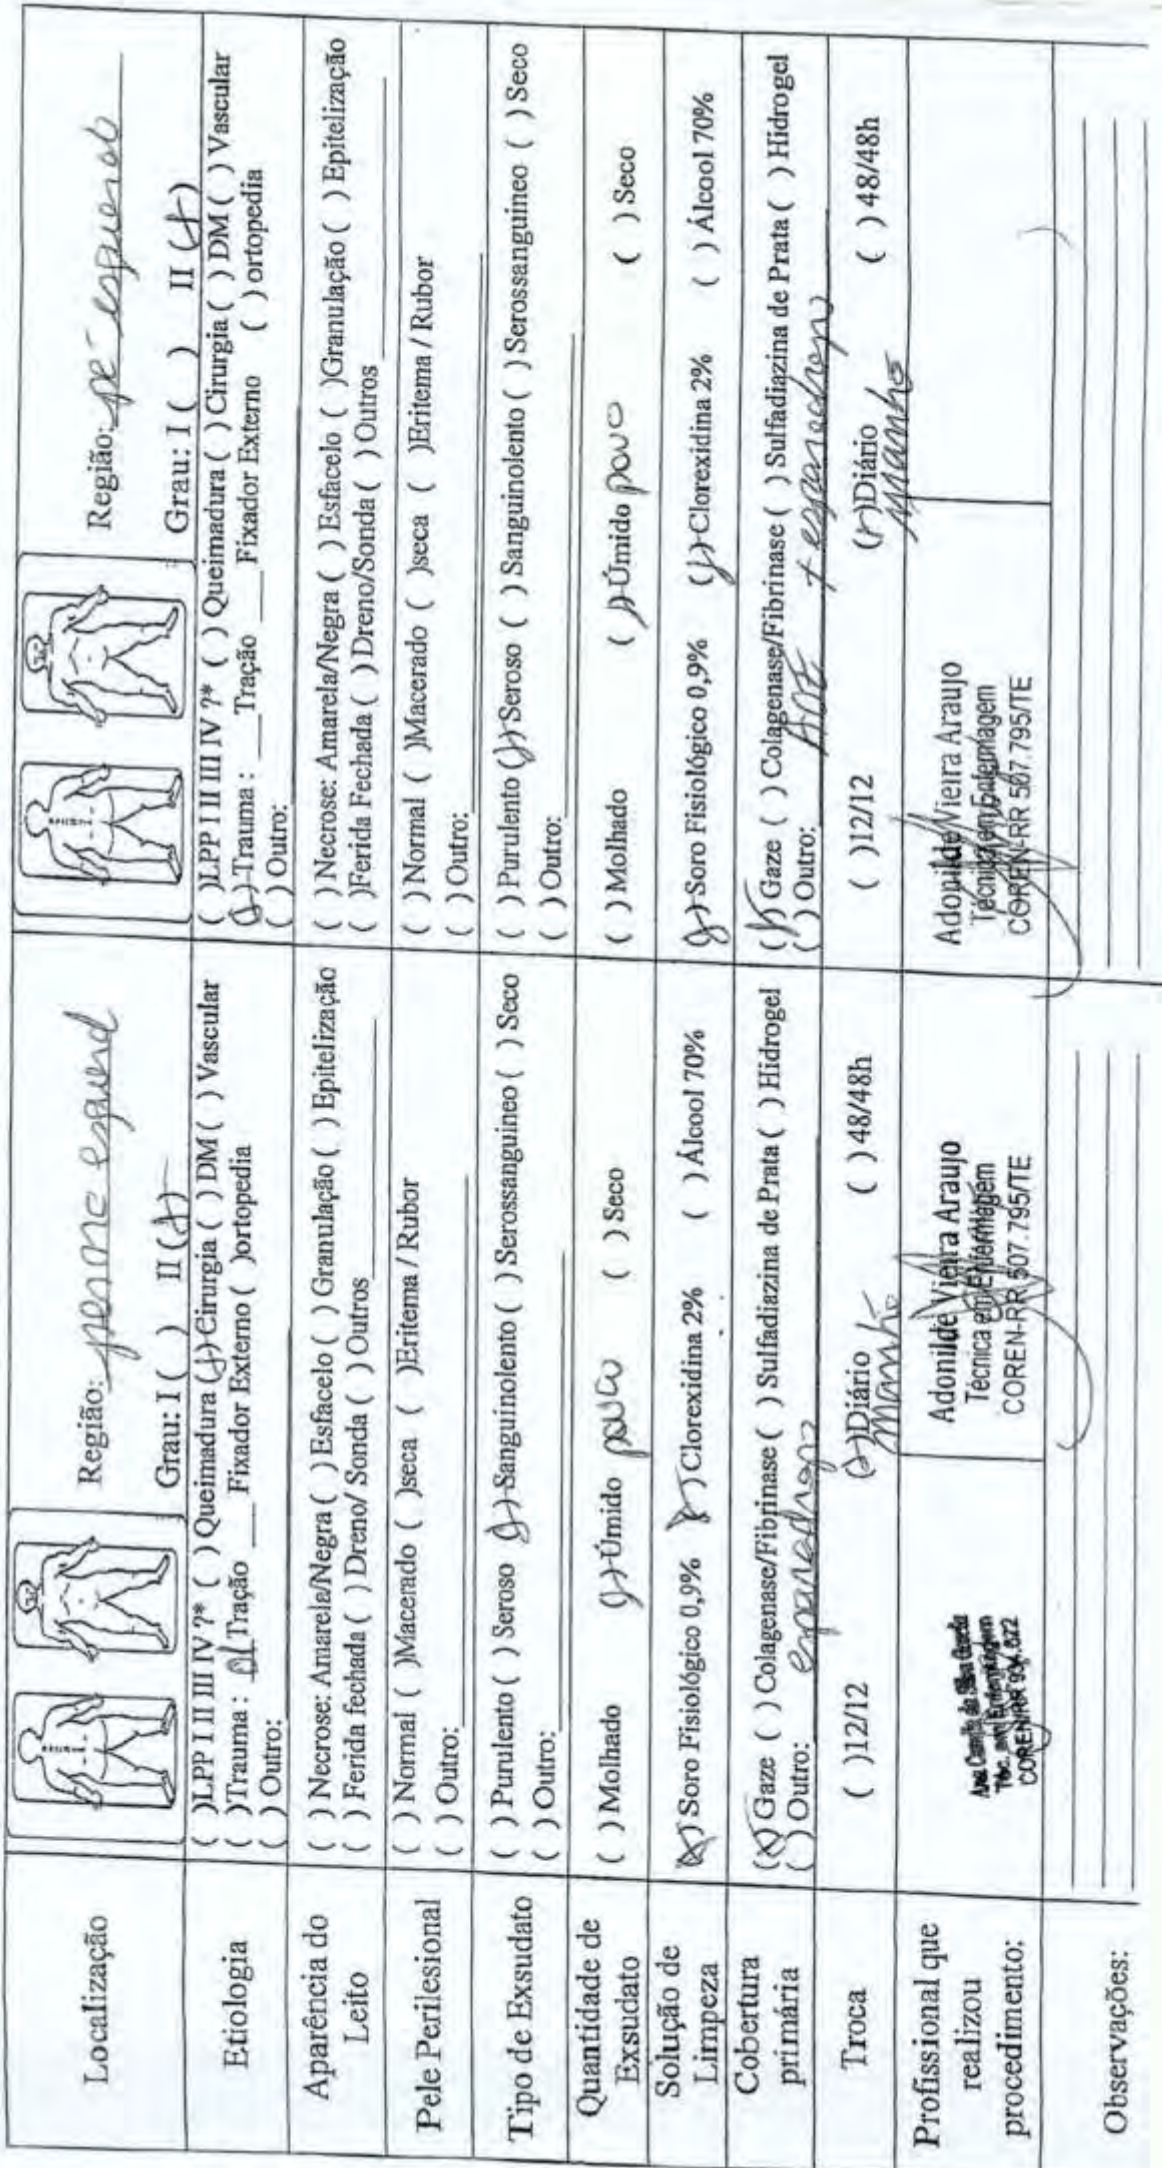 Localização
Região: perna esquerd
Grau: I ( ) II (x)
Região: pé esquerdo
Grau: I ( ) II (x)
Etiologia
( )LPP I II III IV ?* ( ) Queimadura (x) Cirurgia ( ) DM ( ) Vascular
( )Trauma : Tração ___Fixador Externo ( )ortopedia
( ) Outro:
( )LPP I II III IV ?* ( ) Queimadura ( ) Cirurgia ( ) DM ( ) Vascular
(x)Trauma : ___Tração ___Fixador Externo ( ) ortopedia
( ) Outro:
Aparência do
Leito
( ) Necrose: Amarela/Negra ( ) Esfacelo ( ) Granulação ( ) Epitelização
( ) Ferida fechada ( ) Dreno/ Sonda ( ) Outros
( ) Necrose: Amarela/Negra ( ) Esfacelo ( )Granulação ( ) Epitelização
( )Ferida Fechada ( ) Dreno/Sonda ( ) Outros
Pele Perilesional
( ) Normal ( )Macerado ( )seca ( )Eritema / Rubor
( ) Outro:
( ) Normal ( )Macerado ( )seca ( )Eritema / Rubor
( ) Outro:
Tipo de Exsudato
( ) Purulento ( ) Seroso (x) Sanguinolento ( ) Serossanguineo ( ) Seco
( ) Outro:
( ) Purulento (x) Seroso ( ) Sanguinolento ( ) Serossanguineo ( ) Seco
( ) Outro:
Quantidade de
Exsudato
( ) Molhado (x) Úmido pouco ( ) Seco
( ) Molhado (x) Úmido pouco ( ) Seco
Solução de
Limpeza
(x) Soro Fisiológico 0,9% (x) Clorexidina 2% ( ) Álcool 70%
(x) Soro Fisiológico 0,9% (x) Clorexidina 2% ( ) Álcool 70%
Cobertura
primária
(x) Gaze ( ) Colagenase/Fibrinase ( ) Sulfadiazina de Prata ( ) Hidrogel
( ) Outro: esparadrapo
(x) Gaze ( ) Colagenase/Fibrinase ( ) Sulfadiazina de Prata ( ) Hidrogel
( ) Outro: AGE + esparadrapo
Troca
( )12/12 (x)Diário ( ) 48/48h
manhã
( )12/12 (x)Diário ( ) 48/48h
manhã
Profissional que
realizou
procedimento:
Adonilde Vieira Araujo
Técnica em Enfermagem
COREN-RR 507.795/TE
Adonilde Vieira Araujo
Técnica em Enfermagem
COREN-RR 507.795/TE
Observações: